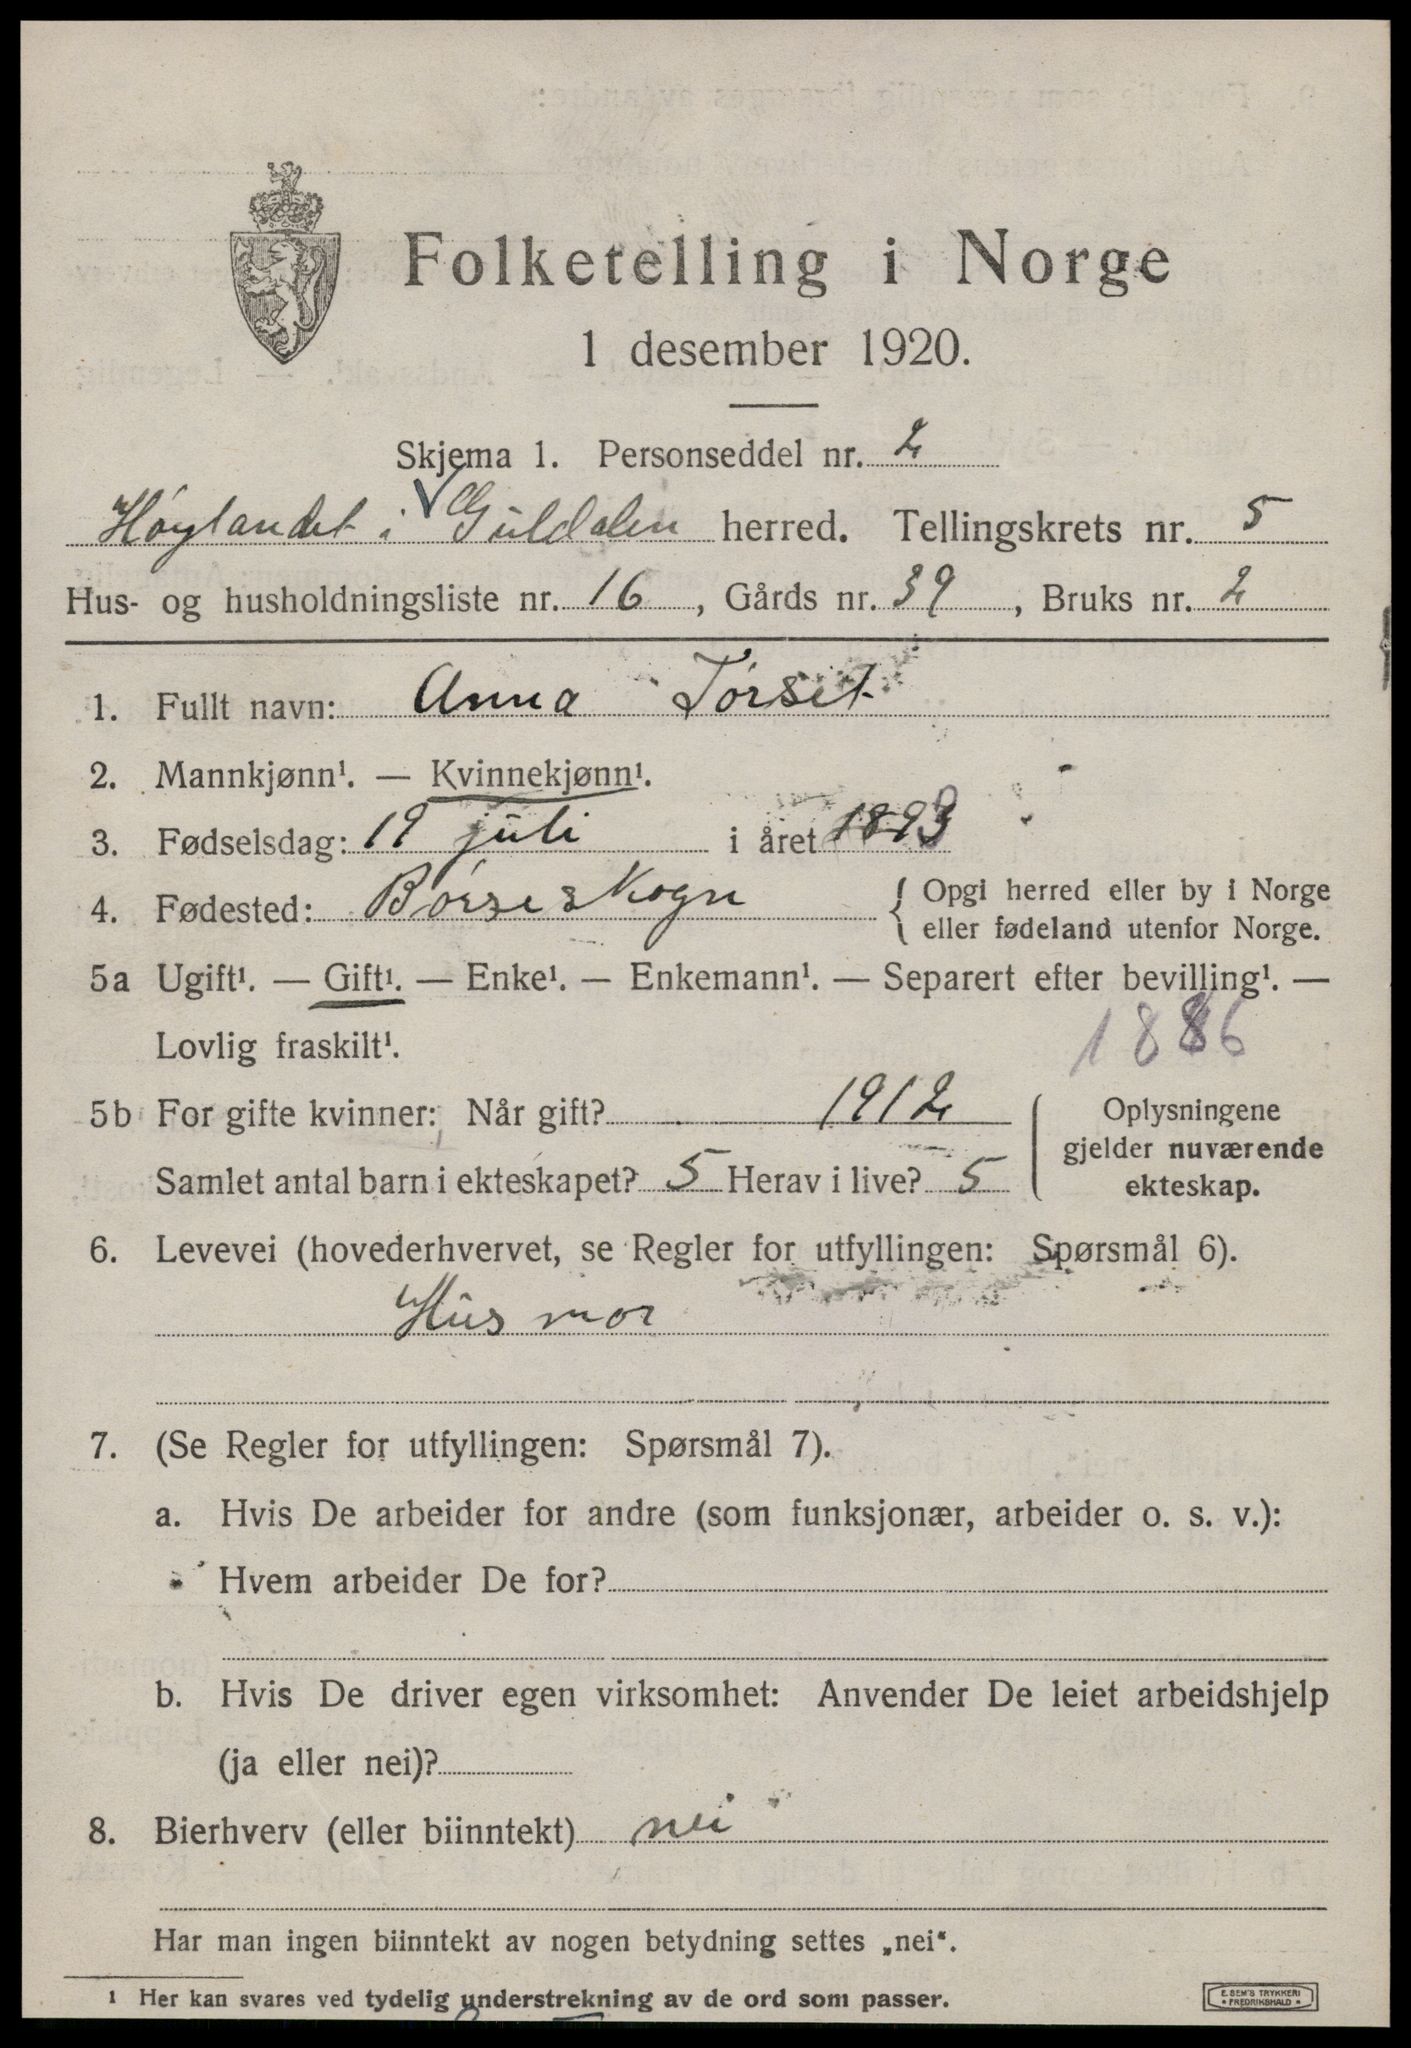 Folketelling i Norge
1 desember 1920.
Skjema 1. Personseddel nr. 2
Høylandet i Guldalen herred. Tellingskrets nr. 5
Hus- og husholdningsliste nr. 16, Gårds nr. 39, Bruks nr. 2
1. Fullt navn: Anna Tørset
2. Mannkjønn¹. — Kvinnekjønn¹.
3. Fødselsdag: 19 juli i året 1893
4. Fødested: Børseskogn { Opgi herred eller by i Norge
eller fødeland utenfor Norge.
5a Ugift¹. — Gift¹. — Enke¹. — Enkemann¹. — Separert efter bevilling¹. —
Lovlig fraskilt¹. 1886
5b For gifte kvinner: Når gift? 1912
Samlet antal barn i ekteskapet? 5 Herav i live? 5
Oplysningene
gjelder nuværende
ekteskap.
6. Levevei (hovederhvervet, se Regler for utfyllingen: Spørsmål 6).
Hus mor
7. (Se Regler for utfyllingen: Spørsmål 7).
a. Hvis De arbeider for andre (som funksjonær, arbeider o. s. v.):
Hvem arbeider De for?
b. Hvis De driver egen virksomhet: Anvender De leiet arbeidshjelp
(ja eller nei)?
8. Bierhverv (eller biinntekt) nei
Har man ingen biinntekt av nogen betydning settes „nei“.
¹ Her kan svares ved tydelig understrekning av de ord som passer.
E. SEM'S TRYKKERI
FREDRIKSHALD